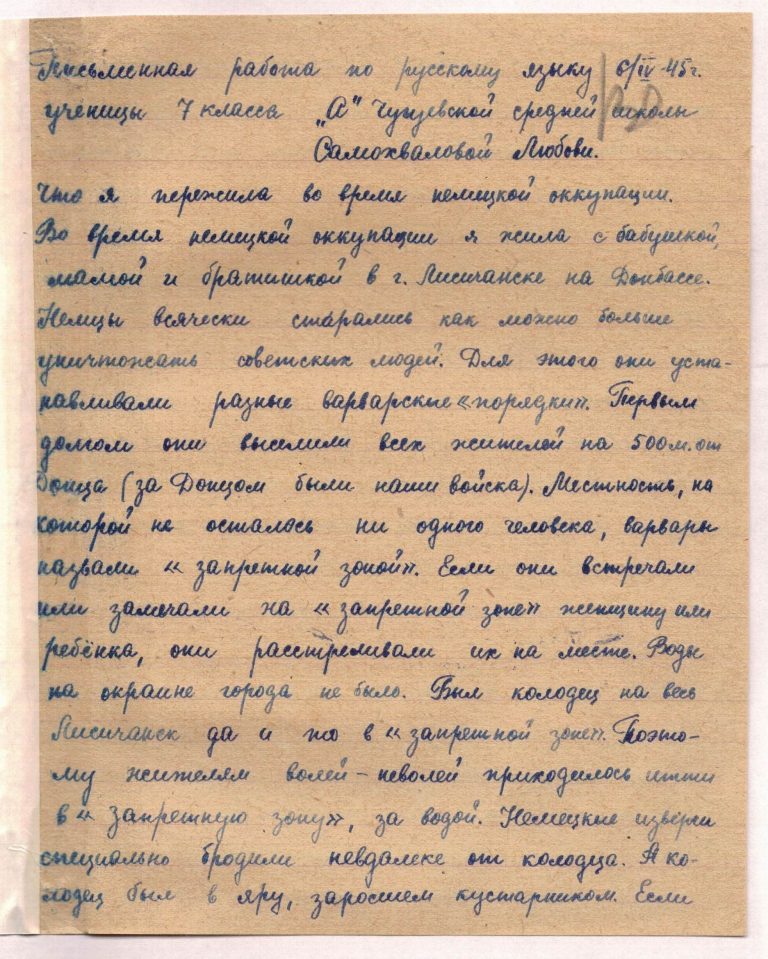 Письменная работа по русскому языку 6/IV-45г.
ученицы 7 класса „А" Чугуевской средней школы
Самохваловой Любови.
Что я пережила во время немецкой оккупации.
Во время немецкой оккупации я жила с бабушкой,
мамой и братишкой в г. Лисичанске на Донбассе.
Немцы всячески старались как можно больше
уничтожать советских людей. Для этого они уста-
навливали разные варварские «порядки». Первым
долгом они выселили всех жителей на 500 м. от
Донца (за Донцом были наши войска). Местность, на
которой не осталось ни одного человека, варвары
назвали «запретной зоной». Если они встречали
или замечали на «запретной зоне» женщину или
ребёнка, они расстреливали их на месте. Воды
на окраине города не было. Был колодец на весь
Лисичанск да и то в «запретной зоне». Поэто-
му жителям волей-неволей приходилось итти
в «запретную зону», за водой. Немецкие изверги
специально бродили невдалеке от колодца. А ко-
лодец был в яру, заросшем кустарником. Если